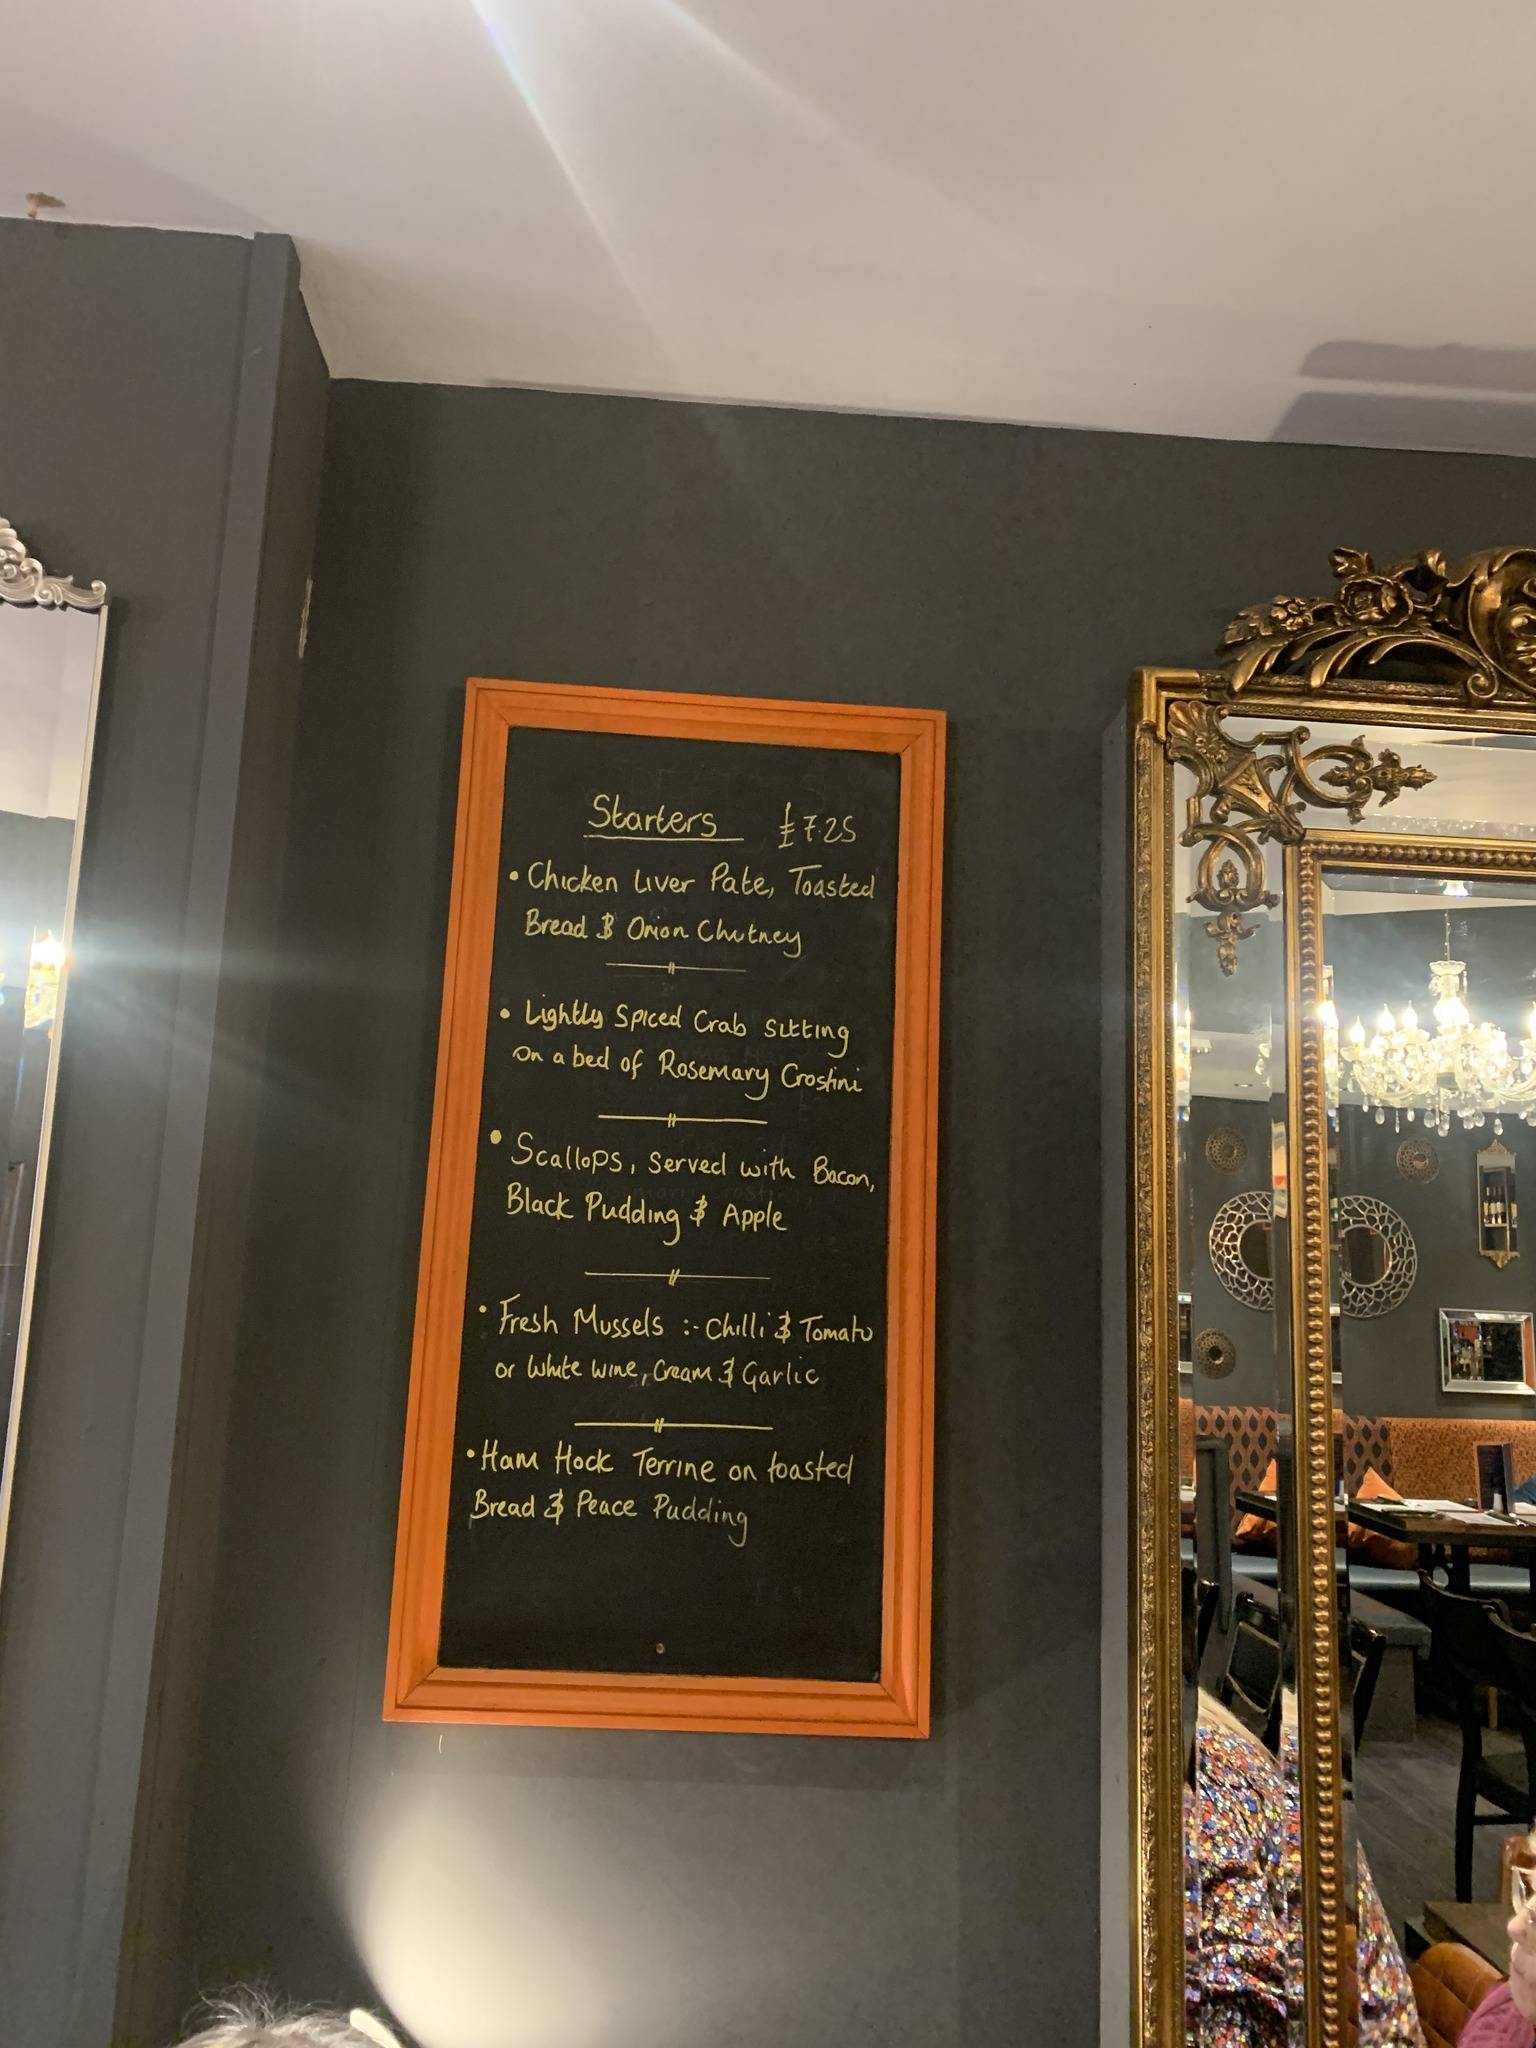 Starters £7.25
• Chicken Liver Pate, Toasted
Bread & Onion Chutney
• Lightly Spiced Crab sitting
on a bed of Rosemary Crostini
• Scallops, served with Bacon,
Black Pudding & Apple
• Fresh Mussels :- Chilli & Tomato
or White wine, Cream & Garlic
• Ham Hock Terrine on toasted
Bread & Peace Pudding